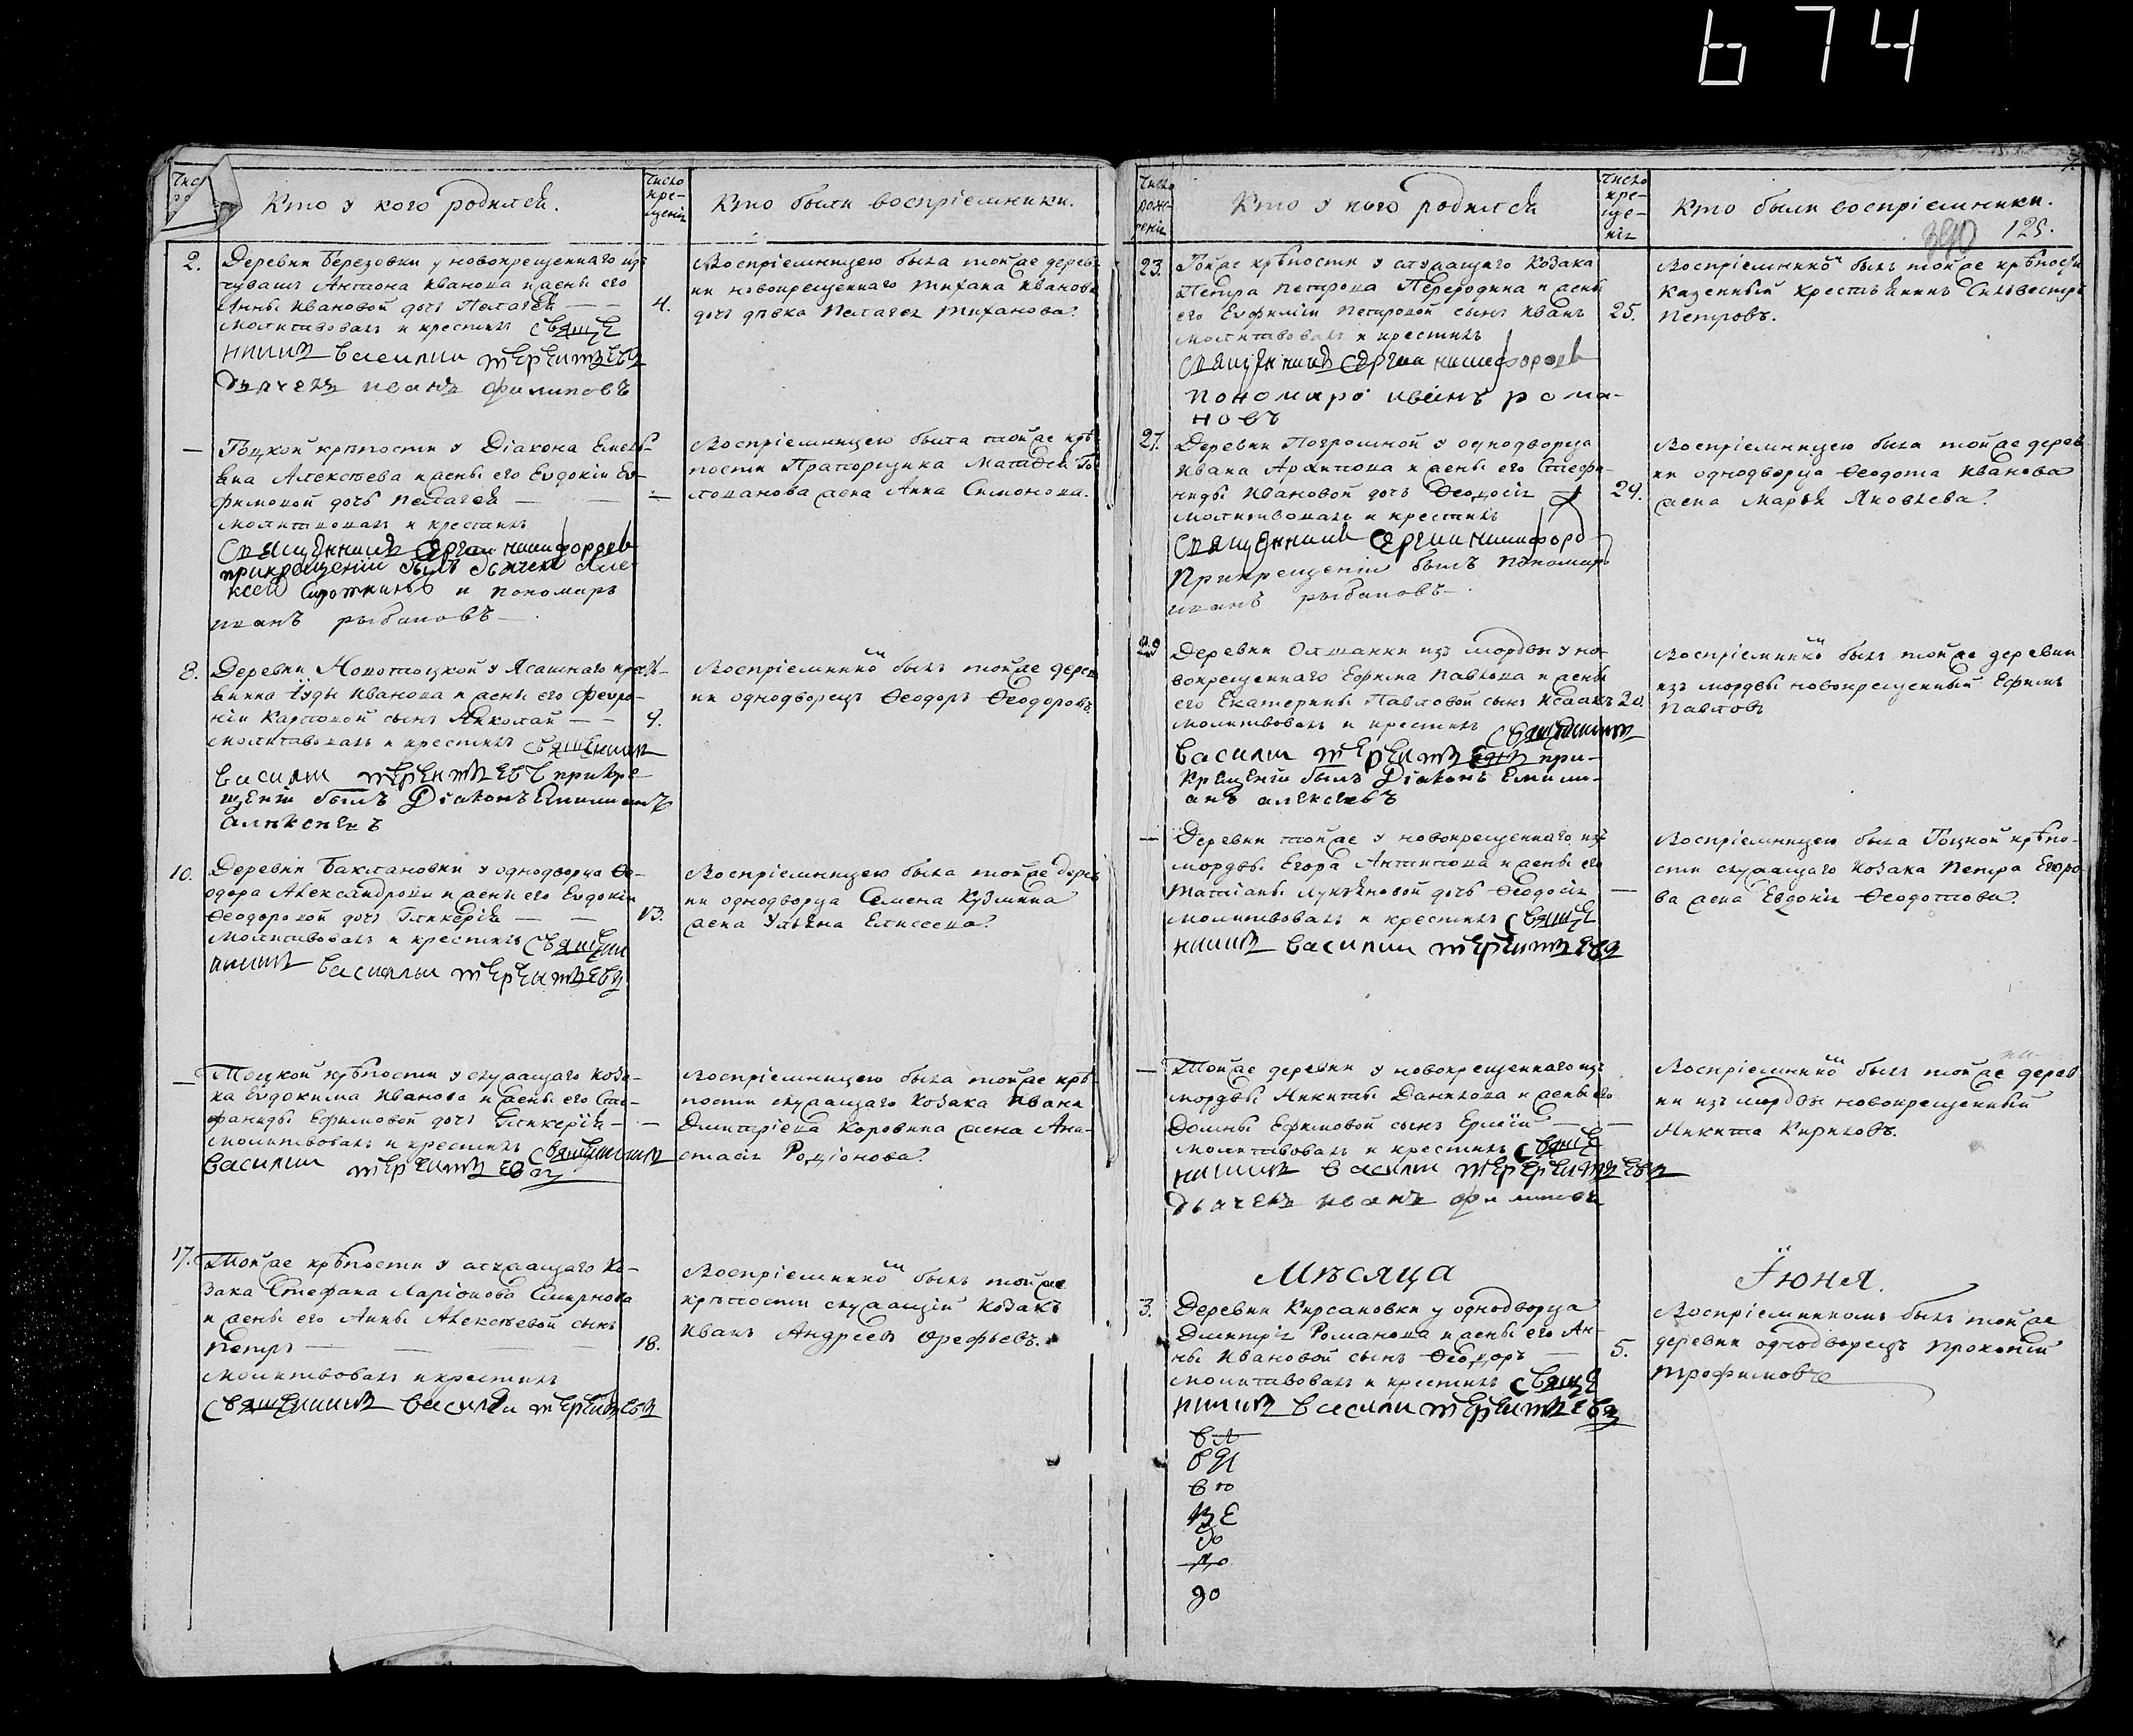 674
Кто у кого родился.
Число кре-
щенія
Кто были воспріемники.
2.
Деревни Березовки у новокрещеннаго изъ
чувашъ Антона Иванова и жены его
Анны Ивановой дочь Пелагея
молитвовалъ и крестилъ свяще
нникъ василии терентьевъ
дьячекъ иванъ филиповъ
4.
Воспріемницею была тойже дерев
ни новокрещеннаго
дочь дѣвка Пелагея
—
Тоцкой крѣпости у Діакона Емель-
яна Алексѣева и жены его Евдокіи Еу-
фимовой дочь Пелагея —
молитвовалъ и крестилъ
Священникъ Сергии никифоровъ
прикрещеніи былъ дьячекъ Але-
ксей Сироткинъ и пономарь
иванъ рыбаковъ
Воспріемницею была тойже крѣ-
пости Прапорщика
жена Анна Симонова.
8.
Деревни Новотоцкой у Ясашнаго кресть-
янина Іуды Иванова и жены его Февро-
ніи Карповой сынъ Николай — —
молитвовалъ и крестилъ священникъ
василии терентьевъ прикре-
щеніи былъ Діаконъ Емилианъ
алѣксѣевъ
9.
Воспріемникомъ былъ тойже дерев
ни однодворецъ Ѳеодоръ Ѳеодоровъ.
10.
Деревни Баклановки у однодворца Ѳе-
одора Александрова и жены его Евдокіи
Ѳеодоровой дочь Гликерія — —
молитвовалъ и крестилъ священ
никъ василии терентьевъ
13.
Воспріемницею была тойже дерев
ни однодворца Семена Кузмина
жена Ульяна Елисеева.
—
Тоцкой крѣпости у служащаго Коза-
ка Евдокима Иванова и жены его Сте-
фаниды Ефимовой дочь Гликерія —
молитвовалъ и крестилъ священникъ
василии терентьевъ
—
Воспріемницею была тойже крѣ-
пости служащаго Козака Ивана
Дмитріева Коровина жена Ана-
стасія Родіонова.
17.
Тойже крѣпости у служащаго Ко-
зака Стефана Ларіонова Смирнова
и жены его Анны Алексѣевой сынъ
Петръ — — — —
молитвовалъ и крестилъ
священникъ василии терентьевъ
18.
Воспріемникомъ былъ тойже
крѣпости служащій Козакъ
Иванъ Андреевъ Орефьевъ.
Число
рож-
денія
Кто у кого родился
Число
кре-
ще-
нія
Кто были воспріемники.
125.
23.
Тойже крѣпости у служащаго Козака
Петра Петрова и жены
его Евфиміи Петровой сынъ Иванъ
молитвовалъ и крестилъ
Священникъ Сергии никифоровъ
пономарь иванъ рома-
новъ
25.
Воспріемникомъ былъ тойже крѣпости
Казенный Крестьянинъ Сильвестръ
Петровъ.
27.
Деревни Погромной у однодворца
Ивана Архипова и жены его Стефа-
ниды Ивановой дочь Ѳеодосія —
молитвовалъ и крестилъ
Священникъ Сергии никифоро
Прикрещеніи былъ пономарь
иванъ рыбаковъ.
29.
Воспріемницею была тойже дерев
ни однодворца Ѳеодота Иванова
жена Марья Яковлева.
29
Деревни изъ мордвы у но-
вокрещеннаго Ефима Павлова и жены
его Екатерины Павловой сынъ Исаакъ
молитвовалъ и крестилъ священникъ
василии терентьевъ при-
крещеніи былъ Діаконъ Емили-
анъ алексеевъ
Воспріемникомъ былъ тойже деревни
изъ мордвы новокрещенный Ефимъ
Павловъ
—
Деревни тойже у новокрещеннаго изъ
мордвы Егора Антипова и жены его
Татіаны Лукьяновой дочь Ѳеодосія
молитвовалъ и крестилъ свяще
нникъ василии терентьевъ
—
Воспріемницею была Тоцкой крѣпо-
сти служащаго Козака Петра Егоро
ва жена Евдокія Ѳеодотова.
—
Тойже деревни у новокрещеннаго изъ
мордвы Никиты Данилова и жены его
Домны Ефимовой сынъ Ермій —
молитвовалъ и крестилъ свяще
нникъ василии терентьевъ
дьячекъ иванъ филиповъ
Воспріемникомъ былъ тойже дерев
ни изъ мордвы новокрещенный
Никита Кириловъ.
Мѣсяца Іюня.
3.
Деревни Кирсановки у однодворца
Дмитрія Романова и жены его Ан-
ны Ивановой сынъ Ѳеодоръ —
молитвовалъ и крестилъ свяще
нникъ василии терентьевъ
5.
Воспріемникомъ былъ тойже
деревни однодворецъ Прокопій
Трофимовъ
до